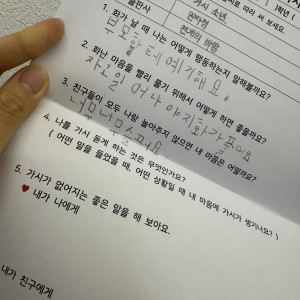 출판사
가시 소년
권자경
천개의 바람
1. 화가 날 때 나는 어떻게 행동하는지 말해볼까요?
부모님한테 예기해요.
2. 화난 마음을 빨리 풀기 위해서 어떻게 하면 좋을까요?
3. 친구들이 모두 나랑 놀아주지 않으면 내 마음은 어떨까요?
너무너무 슬퍼요
4. 나를 가시 돋게 하는 것은 무엇인가요?
( 어떤 말을 들었을 때, 어떤 상황일 때 내 마음에 가시가 생기나요? )
5. 가시가 없어지는 좋은 말을 해 보아요.
♥ 내가 나에게
내가 친구에게